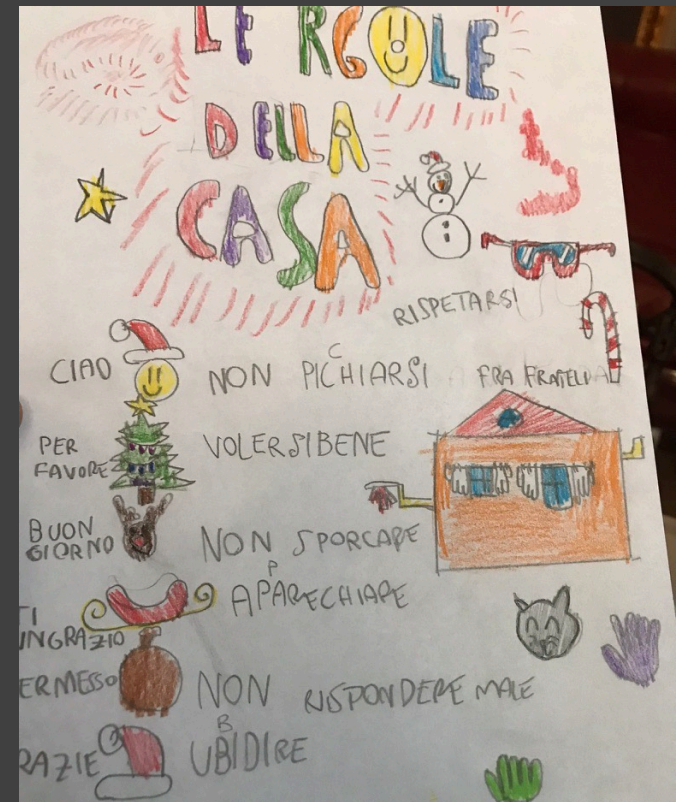 LE RGOLE
DELLA
CASA
RISPETARSI
CIAO
NON PICCHIARSI FRA FRATELLI
PER
FAVORE
VOLERSI BENE
BUON
GIORNO
NON SPORCARE
APPARECHIARE
TI
INGRAZIO
ERMESSO
NON RISPONDERE MALE
RAZIE
UBBIDIRE